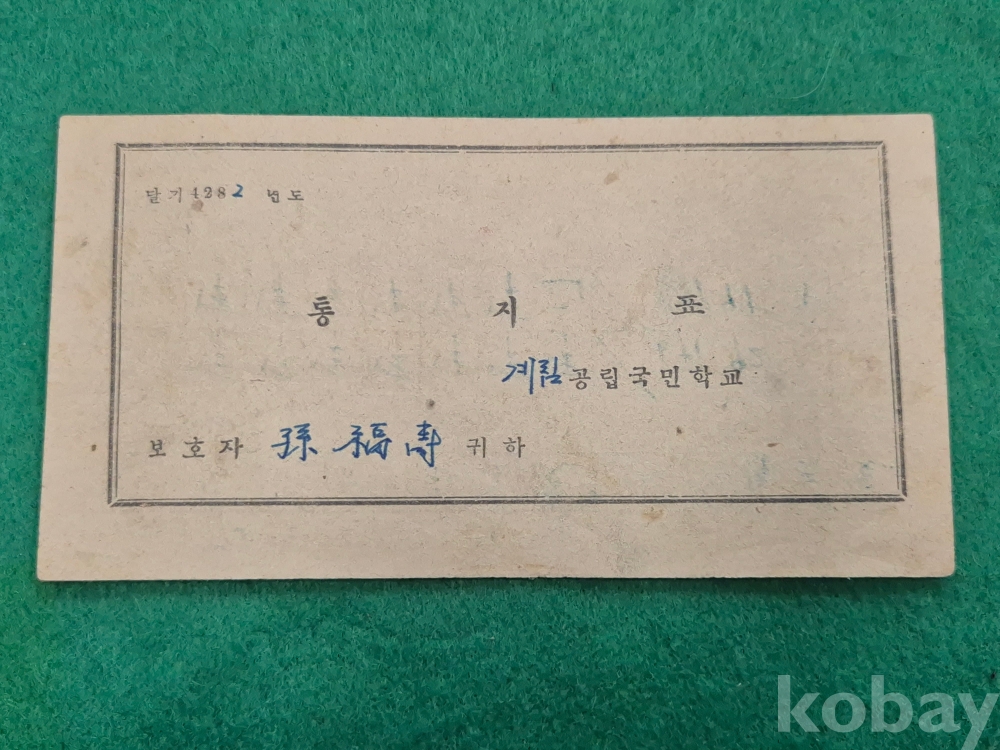 달기 4282 년도
통지표
계림공립국민학교
보호자 孫福壽 귀하
kobay